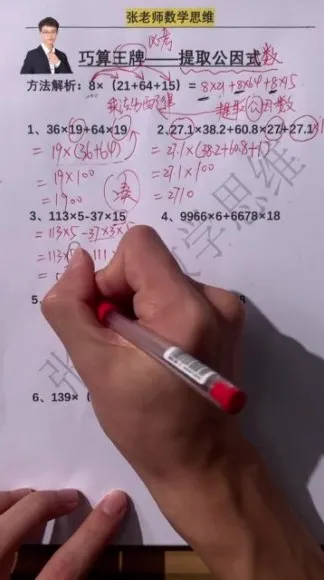 张老师数学思维
必考
巧算王牌——提取公因式数
方法解析：8×（21+64+15）= 8×21+8×64+8×15
乘法分配律 提取公因数
1、36×19+64×19 2、27.1×38.2+60.8×27+27.1
= 19×(36+64) = 27.1×(38.2+60.8+1)
= 19×100 = 27.1×100
= 1900 = 2710
3、113×5-37×15 4、9966×6+6678×18
= 113×5-37×3×5
= 113×5-111
=
5、
6、139×（
张 学思维